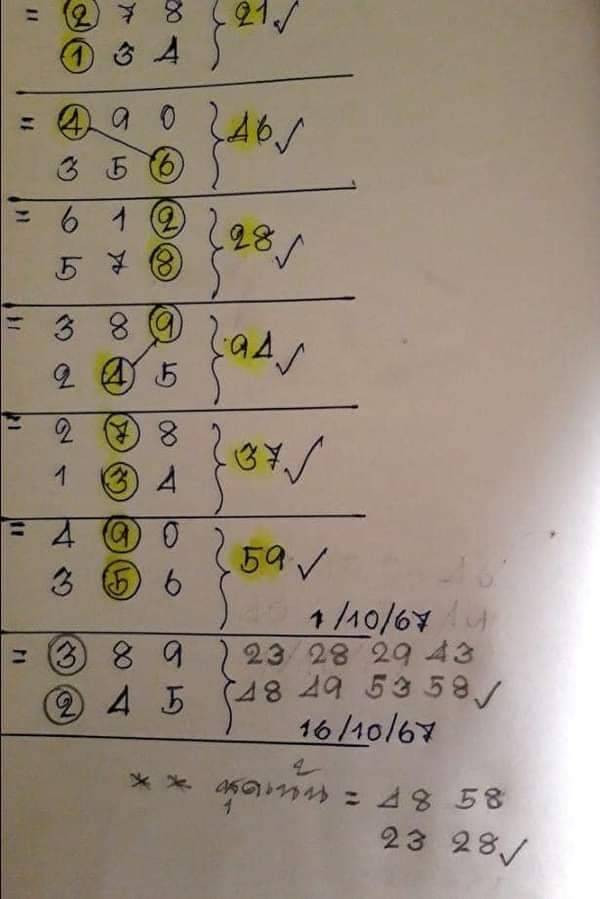 = 2 7 8 } 21 ✓
1 3 4
= 4 9 0 } 46 ✓
3 5 6
= 6 1 2 } 28 ✓
5 7 8
= 3 8 9 } 94 ✓
2 4 5
= 2 7 8 } 37 ✓
1 3 4
= 4 9 0 } 59 ✓
3 5 6
1/10/67
= 3 8 9 } 23 28 29 43
2 4 5 48 49 53 58 ✓
16/10/67
** = 48 58
23 28 ✓